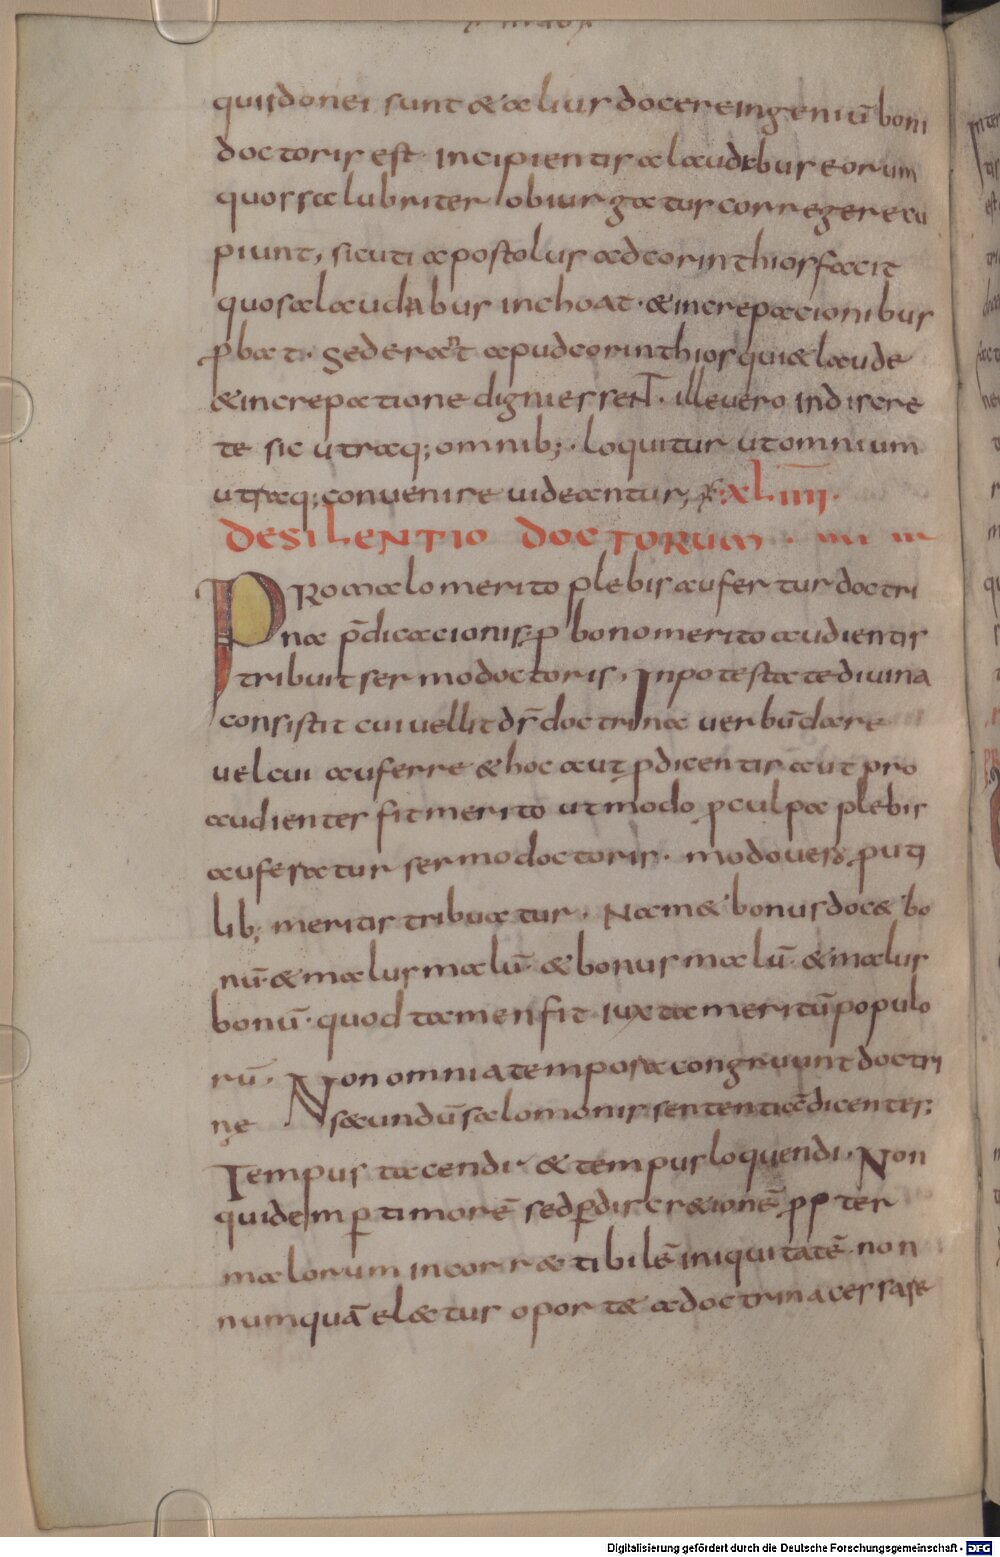 qui idonei sunt & alius docere ingeniū boni
doctoris est incipientis a laudibus eorum
quos salubriter obiurgatus corregere cu
piunt, sicuti apostolus ad corinthios facit
quos a laudabus inchoat · & increpacionibus
ꝓbat · sed erant apud corinthios qui & laude
& increpatione digni essent · ille vero indiscre
te sic utraq; omnib; · loquitur ut omnium
utraq; convenire uideantur; XLIIII ·
DE SILENTIO DOCTORUM ·
PRo malo merito plebis aufertur doctri
na p̄dicacionis; ꝓ bono merito audientis
tribuit sermo doctoris, In potestate divina
consistit cui vellit d̄s doctrinae verbū dare
vel cui auferre & hoc aut p̄dicentis aut pro
audientes fit merito ut modo ꝓ culpa plebis
auferatur sermo doctoris · modo vero ꝓ utq
lib; meritis tribuatur, Nam & bonus doc& bo
nū · & malus malū · & bonus malū · & malus
bonū · quod tamen fit iuxta meritū populo
rū · Non omnia tempora congruunt doctri
ne Saecundū salomonis sententiā dicentes;
Tempus tacendi · & tempus loquendi · Non
quidem ꝑ timorē sed ꝑ discr&ionē ꝓpter
malorum incorr&tibilē iniquitatē · non
numquā el&tus oport& a doctrina cessare
Digitalisierung gefördert durch die Deutsche Forschungsgemeinschaft · DFG